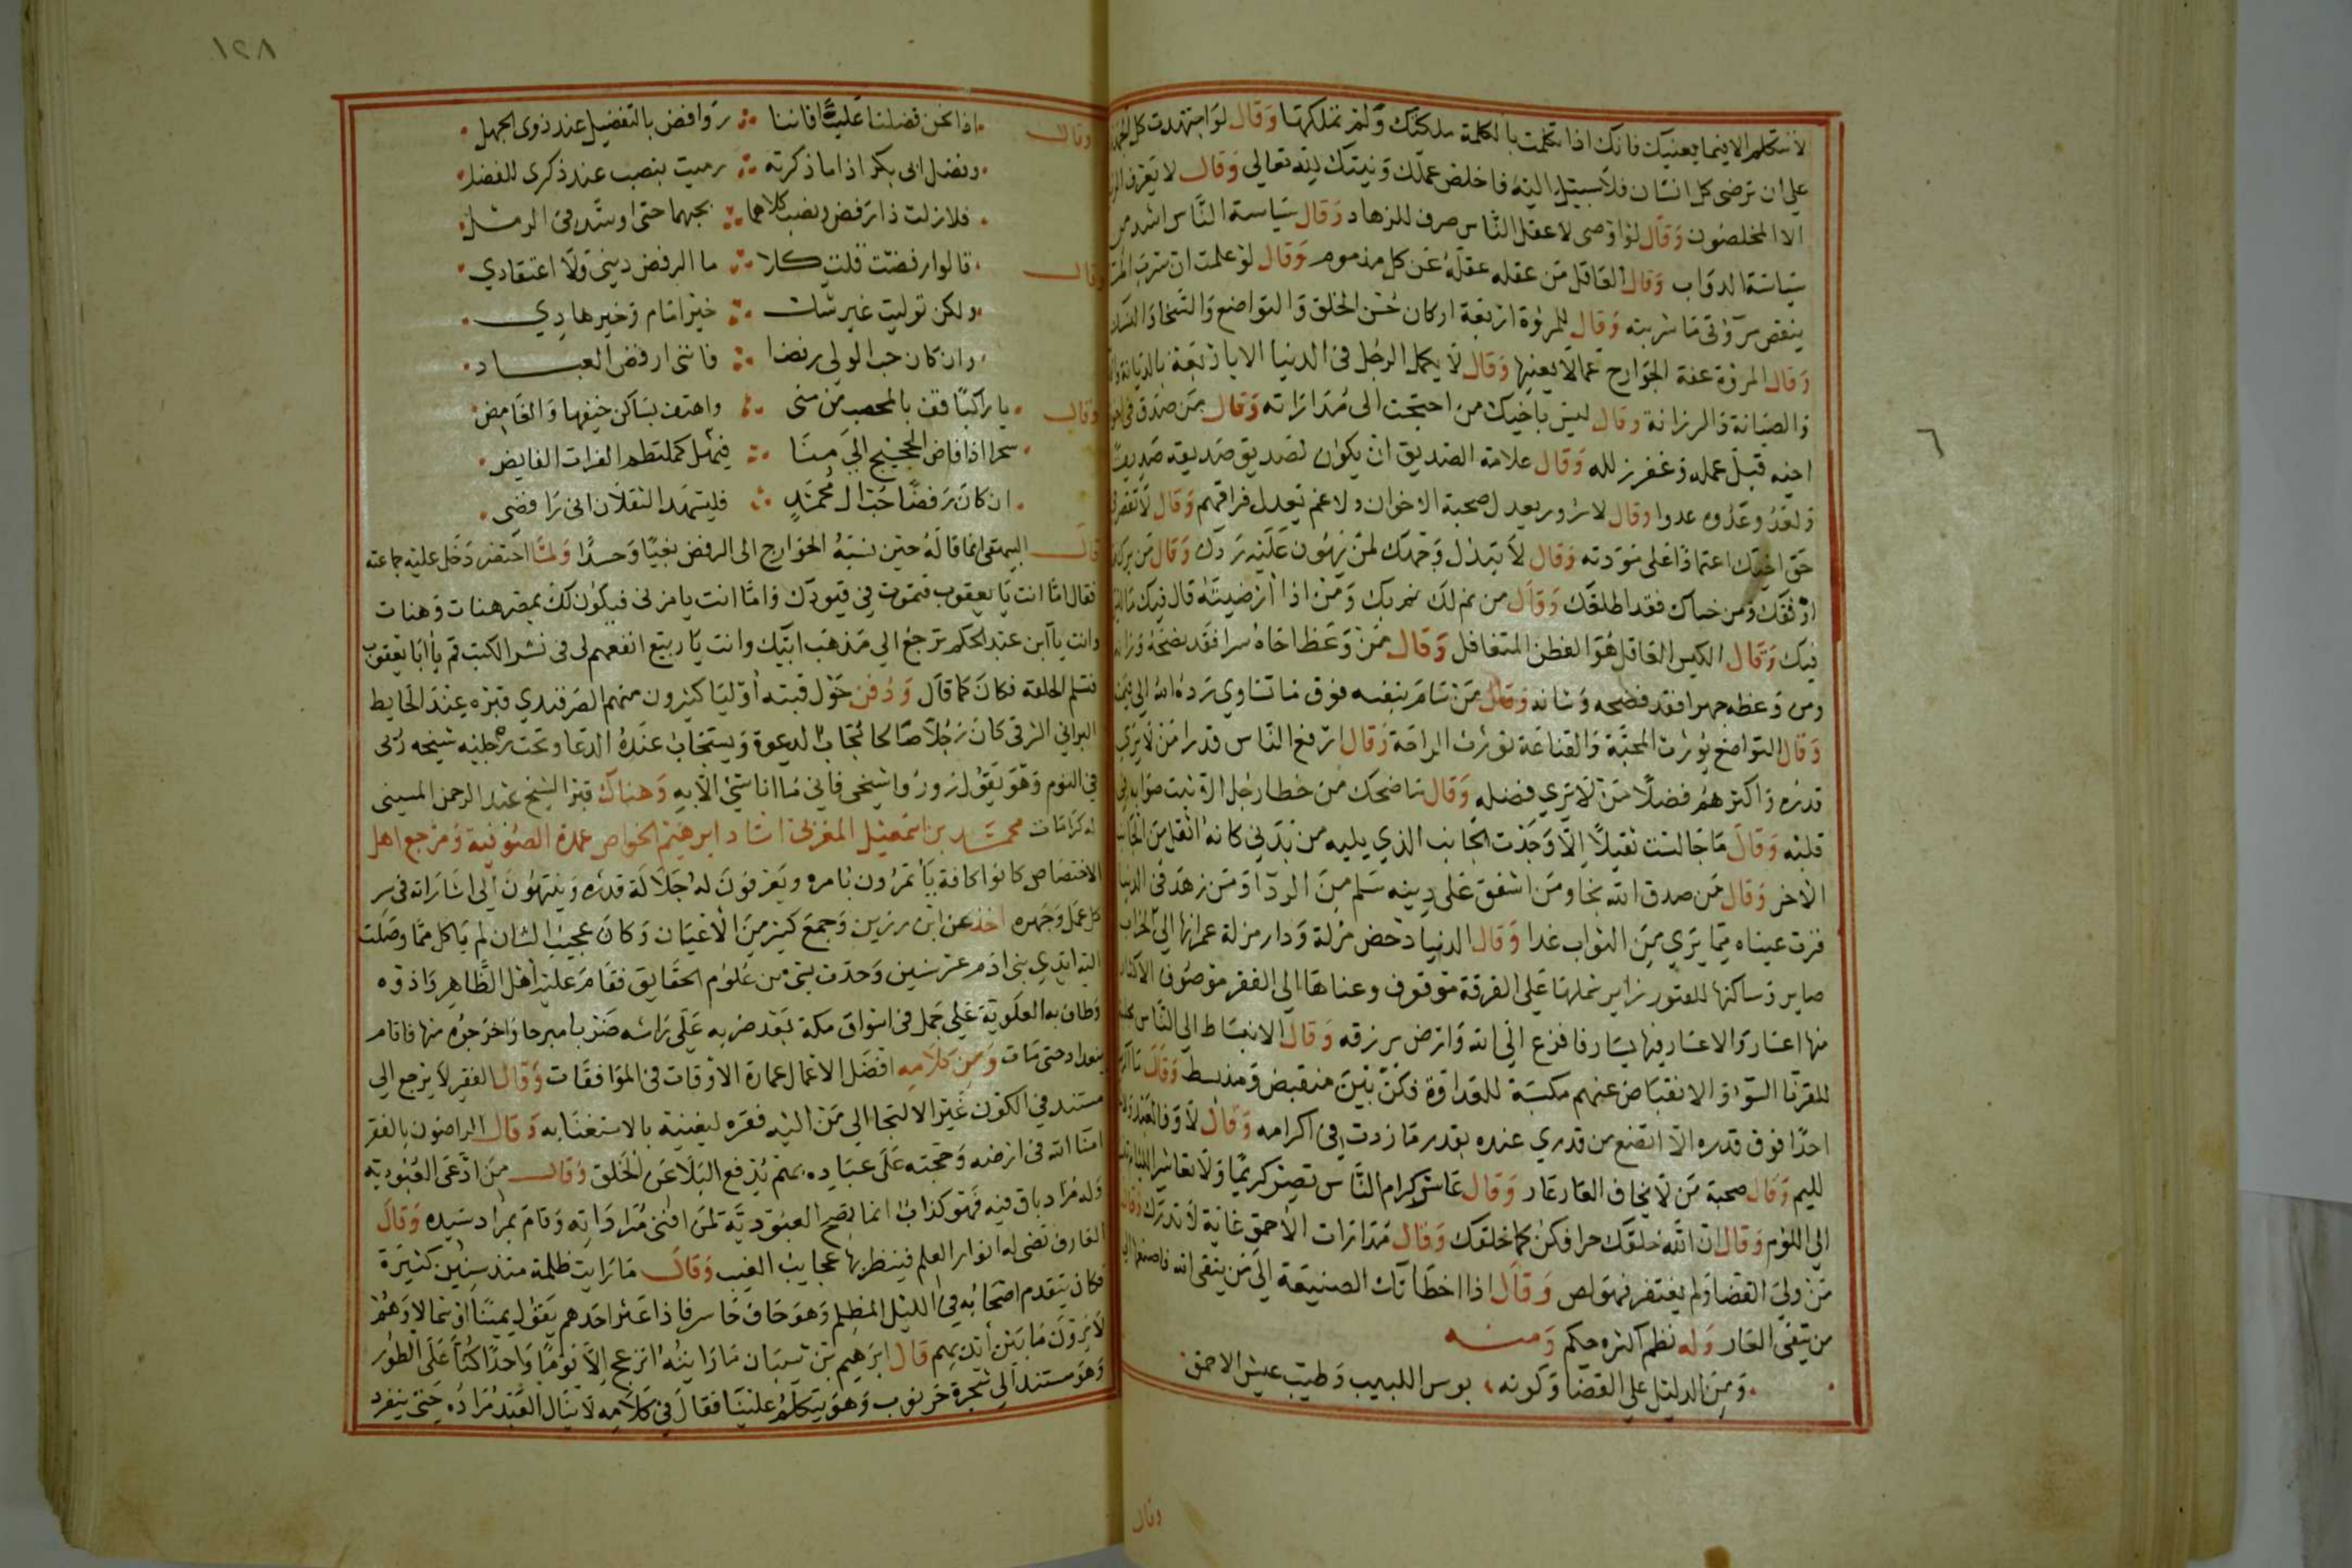 لا تتكلم الا فيما يعنيك فانك اذا تكلمت بالكلمة ملكتك ولم تملكها وقال لو اجتهدت كل الجهد
على ان ترضى كل انسان فلا سبيل اليه فاخلص عملك ونيتك لله تعالى وقال لا يعرف الريا
الا المخلصون وقال لو اوصى لاعقل الناس صرف للزهاد وقال سياسة الناس اشد من
سياسة الدواب وقال العاقل من عقله عقله عن كل مذموم وقال لو علمت ان شرب الماء
ينقص مروءتى ما شربته وقال للمروة اربعة اركان حسن الخلق والتواضع والسخا والنسك
وقال المروة عفة الجوارح عما لا يعنيها وقال لا يكمل الرجل فى الدنيا الا باربعة بالديانة
والصيانة والرزانة وقال ليس باخيك من احتجت الى مداراته وقال من صدق فى اخوة
اخيه قبل علله وغفر زلله وقال علامة الصديق ان يكون لصديق صديقه صديقا
ولعدو عدوه عدوا وقال لا سرور يعدل صحبة الاخوان ولا غم يعدل فراقهم وقال لا تقصر فى
حق اخيك اعتمادا على مودته وقال لا تبذل وجهك لمن يهون عليه ردك وقال من برك فقد
اوثقك ومن جفاك فقد اطلقك وقال من نم لك نم بك ومن اذا ارضيته قال فيك ما ليس
فيك وقال الكيس العاقل هو الفطن المتغافل وقال من وعظ اخاه سرا فقد نصحه وزانه
ومن وعظه جهرا فقد فضحه وشانه وقال من سام بنفسه فوق ما تساوي رده الله الى قيمته
وقال التواضع يورث المحبة والقناعة تورث الراحة وقال ارفع الناس قدرا من لا يرى
قدره واكثرهم فضلا من لا يرى فضله وقال ما ضحك من خطا رجل الا ثبت صوابه فى
قلبه وقال ما جالست ثقيلا الا وجدت الجانب الذي يليه من بدني كانه اثقل من الجانب
الاخر وقال من صدق الله نجا ومن اشفق على دينه سلم من الردا ومن زهد فى الدنيا
قرت عيناه بما يرى من الثواب غدا وقال الدنيا دحض مزلة ودار مزلة عمرانها الى الخراب
صاير وساكنها للقبور زاير شملها على الفرقة موقوف وغناها الى الفقر مصروف الاكثار
منها اعسار والاعسار فيها يسار فافزع الى الله وارض برزقه وقال الانبساط الى الناس مجلبة
لقرنا السوء والانقباض عنهم مكسبة للعداوة فكن بين منقبض ومنبسط وقال ما اكرمت
احدا فوق قدره الا اتضع من قدري عنده بقدر ما زدت فى اكرامه وقال لا وفا لعبد ولا
لليم وقال صحبة من لا يخاف العار عار وقال عاشر كرام الناس تصير كريما ولا تعاشر اللئام
الى اللؤم وقال ان الله خلقك حرا فكن كما خلقك وقال مداراة الاحمق غاية لا تدرك وقال
من ولى القضا ولم يفتقر فهو لص وقال اذا اخطاتك الصنيعة الى من يتقى الله فاصنعها الى
من يتقى العار وله نظم اكثره حكم ومنه
ومن الدليل على القضا وكونه ، بوس اللبيب وطيب عيش الاحمق
وقال
٦
١٢٨
وقال اذا نحن فضلنا عليا فاننا روافض بالتفضيل عند ذوى الجهل
وفضل ابى بكر اذا ما ذكرته رميت بنصب عند ذكرى للفضل
فلا زلت ذا رفض ونصب كلاهما بحبهما حتى اوسد فى الرمل
وقال قالوا رفضت قلت كلا ما الرفض ديني ولا اعتقادي
ولكن توليت غير شك خير امام وخير هادي
وان كان حب الولي رفضا فانني ارفض العباد
وقال يا راكبا قف بالمحصب من منى واهتف بساكن خيفها والناهض
سحرا اذا فاض الحجيج الى منا فيضا كملتطم الفرات الفايض
ان كان رفضا حب ال محمد فليشهد الثقلان انى رافضى
قال البيهقى انما قاله حين نسبه الخوارج الى الرفض بغيا وحسدا ولما احتضر دخل عليه جماعته
فقال اما انت يا يعقوب فتموت في قيودك واما انت يا مزنى فيكون لك بمصر هنات وهنات
وانت يا ابن عبد الحكم ترجع الى مذهب ابيك وانت يا ربيع انفعهم لى فى نشر الكتب قم يا ابا يعقوب
فتسلم الحلقة فكان كما قال ودفن حول قبته اوليا كثيرون منهم الصرفندي قبره عند الحايط
البراني الشرقي كان رجلا صالحا مجاب الدعوة ويستجاب عنده الدعا وتحت رجليه شيخه رئى
في النوم وهو يقول زوروا شيخى فاني ما انا شئ الا به وهناك قبر الشيخ عبد الرحمن المسينى
له كرامات محمد بن اسمعيل المغربى استاد ابرهيم الخواص عمدة الصوفية ومرجع اهل
الاختصاص كانوا كافة يأتمرون بامره ويعرفون له جلالة قدره وينتهون الى اشاراته فى سر
كل عمل وجهره اخذ عن ابن رزين وجمع كثير من الاعيان وكان عجيب الشان لم ياكل مما وصلت
اليه ايدي بنى ادم عشر سنين وحدث بشئ من علوم الحقايق فقام عليه اهل الظاهر واذوه
وطاف به العلوية على جمل فى اسواق مكة بعد ضربه على راسه ضربا مبرحا واخرجوه منها فاقام
ببغداد حتى مات ومن كلامه افضل الاعمال عمارة الاوقات فى الموافقات وقال الفقير لا يرجع الى
مستند في الكون غير الالتجا الى من اليه فقره ليغنيه بالاستغنا به وقال الراضون بالفقر
امنا الله فى ارضه وحجته على عباده بهم يدفع البلا عن الخلق وقال من ادعى العبودية
وله مراد باق فيه فهو كذاب انما تصح العبودية لمن افنى مراداته وقام بمراد سيده وقال
العارف تضى له انوار العلم فينظر بها عجايب الغيب وقال ما رايت ظلمة منذ سنين كثيرة
فكان يتقدم اصحابه في الليل المظلم وهو حاف حاسر فاذا عثر احدهم يقول يمينا او شمالا وهم
لا يرون ما بين ايديهم قال ابرهيم بن شيبان ما رايته انزعج الا يوما واحدا كنا على الطور
وهو مستند الى شجرة خرنوب وهو يتكلم علينا فقال في كلامه لا ينال العبد مراده حتى ينفرد